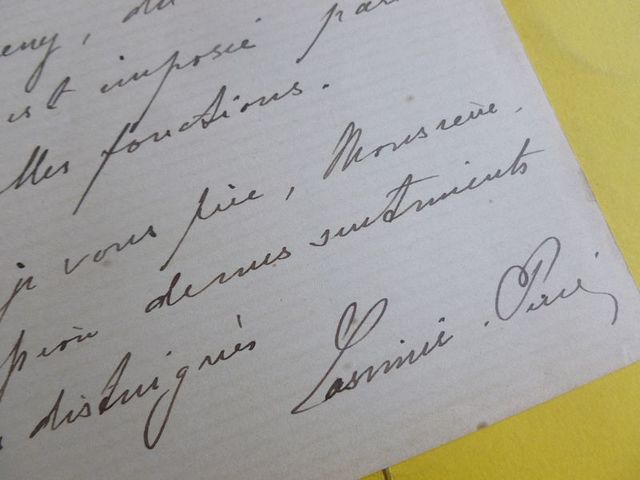 est imposée par
lles fonctions.
je vous prie, Monsieur,
de mes sentiments
distingués Casimir. Perier